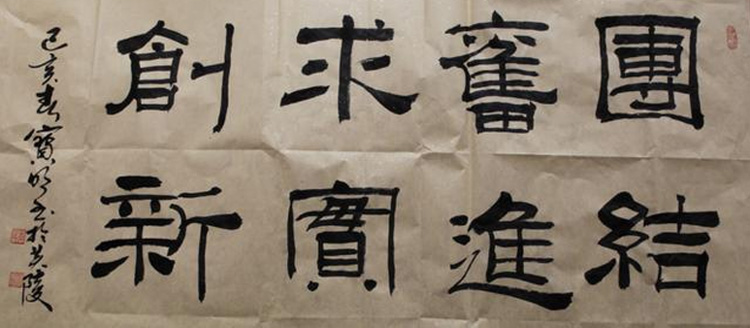 團結
奮進
求實
創新
己亥春寶明書於茂陵